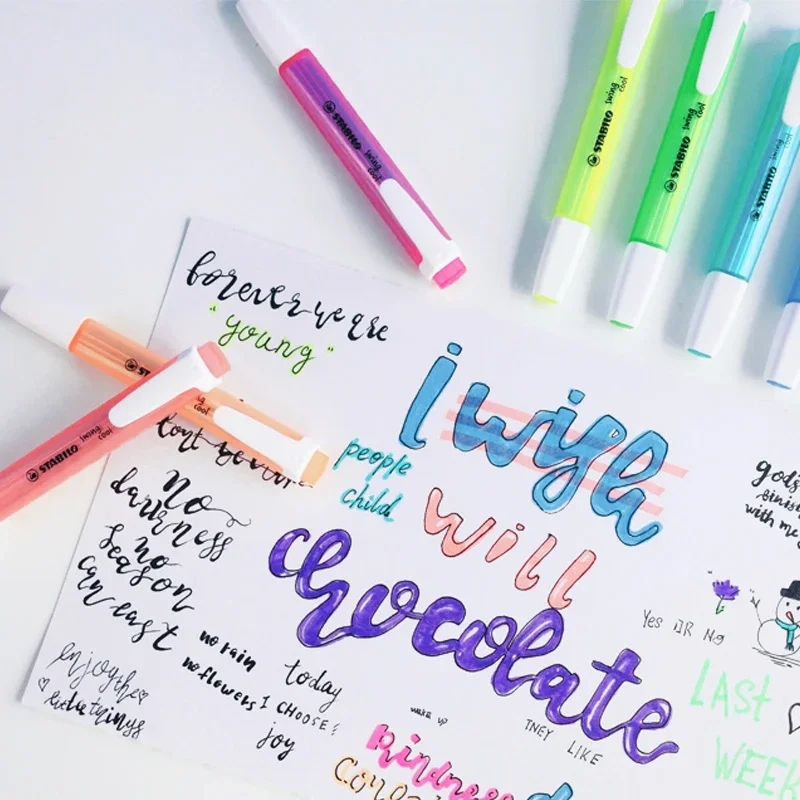 STABILO swing cool
STABILO swing cool
STABILO swing cool
STABILO swing cool
forever we are
"young"
STABILO
STABILO swing cool
i wish
people
child
will
chocolate
No
darkness
no
season
can east
gods
finish
with me
Yes OR No
no rain
no flowers
today
I CHOOSE
joy
enjoy the
little things
wake up
THEY LIKE
LAST
WEEK
kindness